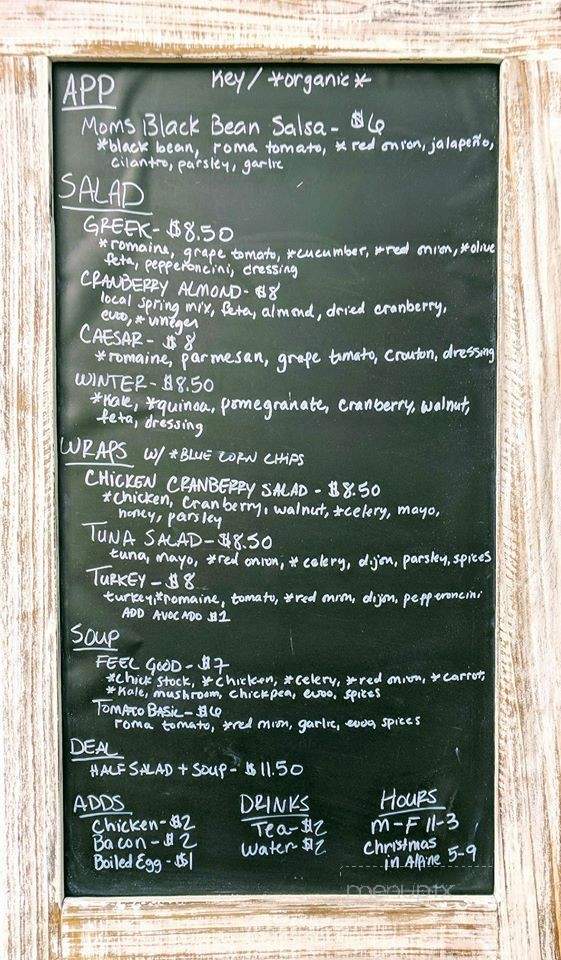 Key / *organic*
APP
Moms Black Bean Salsa - $6
*black bean, roma tomato, *red onion, jalapeño,
cilantro, parsley, garlic
SALAD
GREEK - $8.50
*romaine, grape tomato, *cucumber, *red onion, *olive
feta, pepperoncini, dressing
CRANBERRY ALMOND - $8
local spring mix, feta, almond, dried cranberry,
evoo, *vinegar
CAESAR - $8
*romaine, parmesan, grape tomato, crouton, dressing
WINTER - $8.50
*Kale, *quinoa, pomegranate, cranberry, walnut,
feta, dressing
WRAPS W/ *BLUE CORN CHIPS
CHICKEN CRANBERRY SALAD - $8.50
*chicken, cranberry, walnut, *celery, mayo,
honey, parsley
TUNA SALAD - $8.50
tuna, mayo, *red onion, *celery, dijon, parsley, spices
TURKEY - $8
turkey, *romaine, tomato, *red onion, dijon, pepperoncini
ADD AVOCADO $1
SOUP
FEEL GOOD - $7
*chick stock, *chicken, *celery, *red onion, *carrot,
*Kale, mushroom, chickpea, evoo, spices
TOMATO BASIL - $6
roma tomato, *red onion, garlic, evoo, spices
DEAL
HALF SALAD + SOUP - $11.50
ADDS
Chicken - $2
Bacon - $2
Boiled Egg - $1
DRINKS
Tea - $2
Water - $2
HOURS
M-F 11-3
Christmas
in Alpine 5-9
menupix